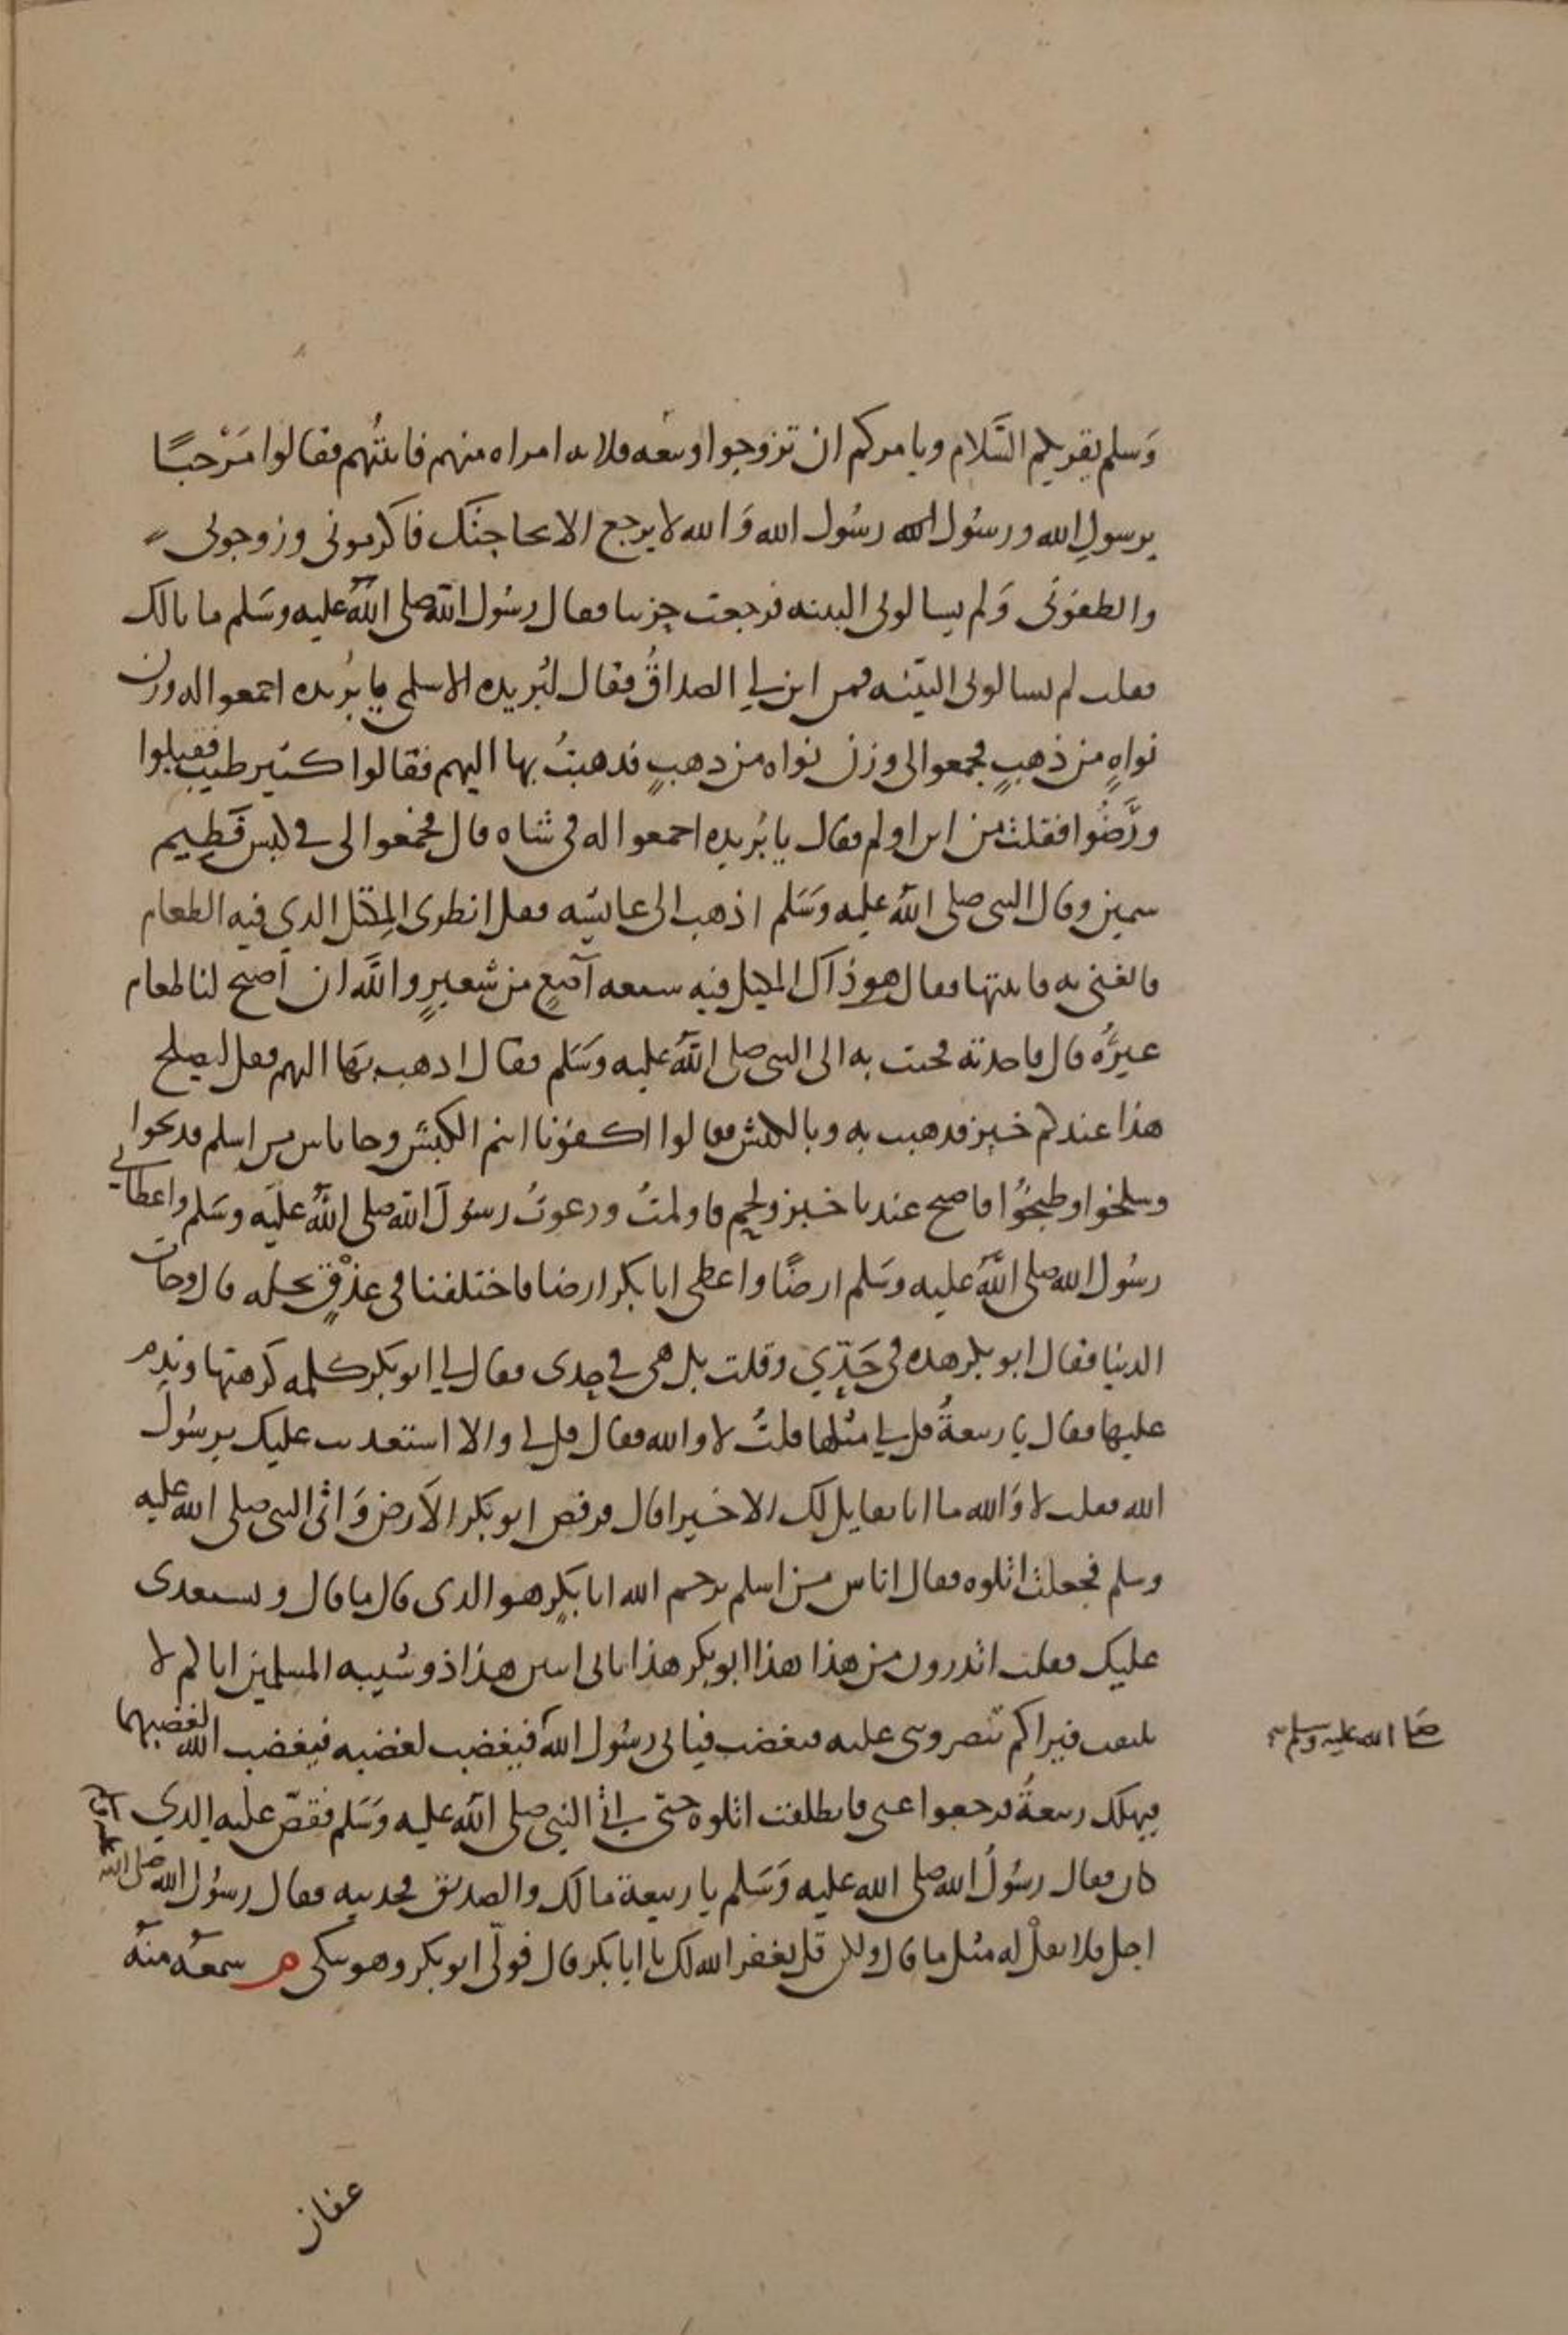 وَسلم يقريكم السَّلام ويامركم ان تزوجوا ربيعه فلانه امراه منهم فاتيتُهم فقالوا مَرْحبًا
برسولِ الله ورسُول رسُول الله وَالله لا يرجع الا بحاجتك فاكرمونى وزوجونى
والطفونى وَلم يسالونى البينه فرجعت حزينا فقال رسُول الله صلى الله عليه وسَلم ما بالك
فقلت لم يسالونى البيّنه فمن اين لي الصداقُ فقال لبُريده الاسلمى يا بُريده اجمعوا له وزن
نواهٍ من ذهبٍ فجمعوا لى وزن نواه من دهبٍ فدهبتُ بها اليهم فقالوا كثير طيب فقبلوا
ورَّضُوا فقلت من اين اولم فقال يا بُريده اجمعوا له فى شاه قال فجمعوا لى فى كبس فَطِيم
سمين وقال النبى صلى الله عليه وَسَلم اذهب الى عايشه فقل انظرى المِكتل الدي فيه الطعام
فابعثى به فاتيتها فقال هو ذاك المكتل فيه سبعه آصُعٍ من شعيرٍ والله ان اصبح لنا طعام
غيرُه قال فاخدته فجيت به الى النبى صلى الله عليه وسَلم فقال ادهب بهَا اليهم فقل ليصلح
هذا عندكم خبز فدهبت به وبالكبش فقالوا اكفونا انتم الكبش وجا ناس من اسلم فدبحوا
وسلخوا وطبخُوا فاصبح عندنا خبز ولحم فاولمتُ ودعوتُ رسُول الله صلى الله عليه وسَلم واعطانى
رسُول الله صلى الله عليه وسَلم ارضًا واعطى ابا بكر ارضا فاختلفنا فى عذْقٍ نخله قال وجات
الدنيا فقال ابو بكر هده فى حَدِّي وقلت بل هى فى حدى فقال لي ابو بكر كلمه كرهتها وندم
عليها فقال يا ربيعةُ قل لي مثلها قلتُ لا والله فقال قل لى والا استعديت عليك برسُول
الله فقلت لا وَالله ما انا بقايل لك الا خيرا قال فرفص ابو بكر الاَرض وَاتى النبى صلى الله عليه
وسلم فجعلت اتلوه فقال اناس من اسلم يرحم الله ابا بكرٍ هو الدى قال ما قال ويستعدى
عليك فقلت اتدرون من هذا هذا ابو بكر هذا ثانى اثنين هذا ذو شيبه المسلمين اياكم لا
يلتفت فيراكم تنصرونى عليه فيغضب فياتى رسُول الله فيغضب لغضبه فيغضب الله لغضبهما
صلى الله عليه وسلم
فيهلك ربيعةُ فرجعوا عنى فانطلقت اتلوه حتى اتى النبى صلى الله عليه وَسَلم فقصّ عليه الدي
كان فقال رسُول الله صلى الله عليه وَسَلم يا ربيعة مالك والصديق فحدثته فقال رسُول الله صلى الله
اجل فلا تقلْ له مثل ما قال ولكن قل يغفر الله لك يا ابا بكر قال فولّى ابو بكر وهو يبكى سمعه منه
عفان